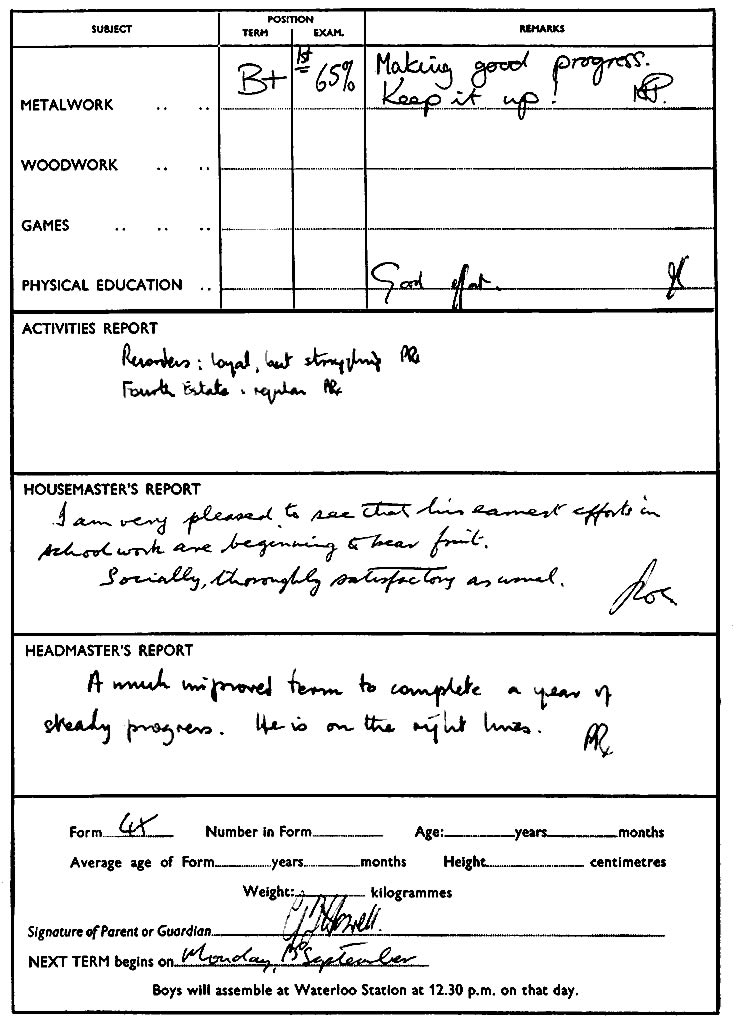 SUBJECT POSITION REMARKS
TERM EXAM.
METALWORK .. .. B+ 1st 65% Making good progress.
Keep it up!
WOODWORK .. ..
GAMES .. .. ..
PHYSICAL EDUCATION .. Good effort.
ACTIVITIES REPORT
Recorders: loyal, but struggling
Fourth Estate. regular
HOUSEMASTER'S REPORT
I am very pleased to see that his earnest efforts in
school work are beginning to bear fruit.
Socially, thoroughly satisfactory as usual.
HEADMASTER'S REPORT
A much improved term to complete a year of
steady progress. He is on the right lines.
Form 4X Number in Form Age: years months
Average age of Form years months Height centimetres
Weight: kilogrammes
Signature of Parent or Guardian
NEXT TERM begins on Monday, September
Boys will assemble at Waterloo Station at 12.30 p.m. on that day.